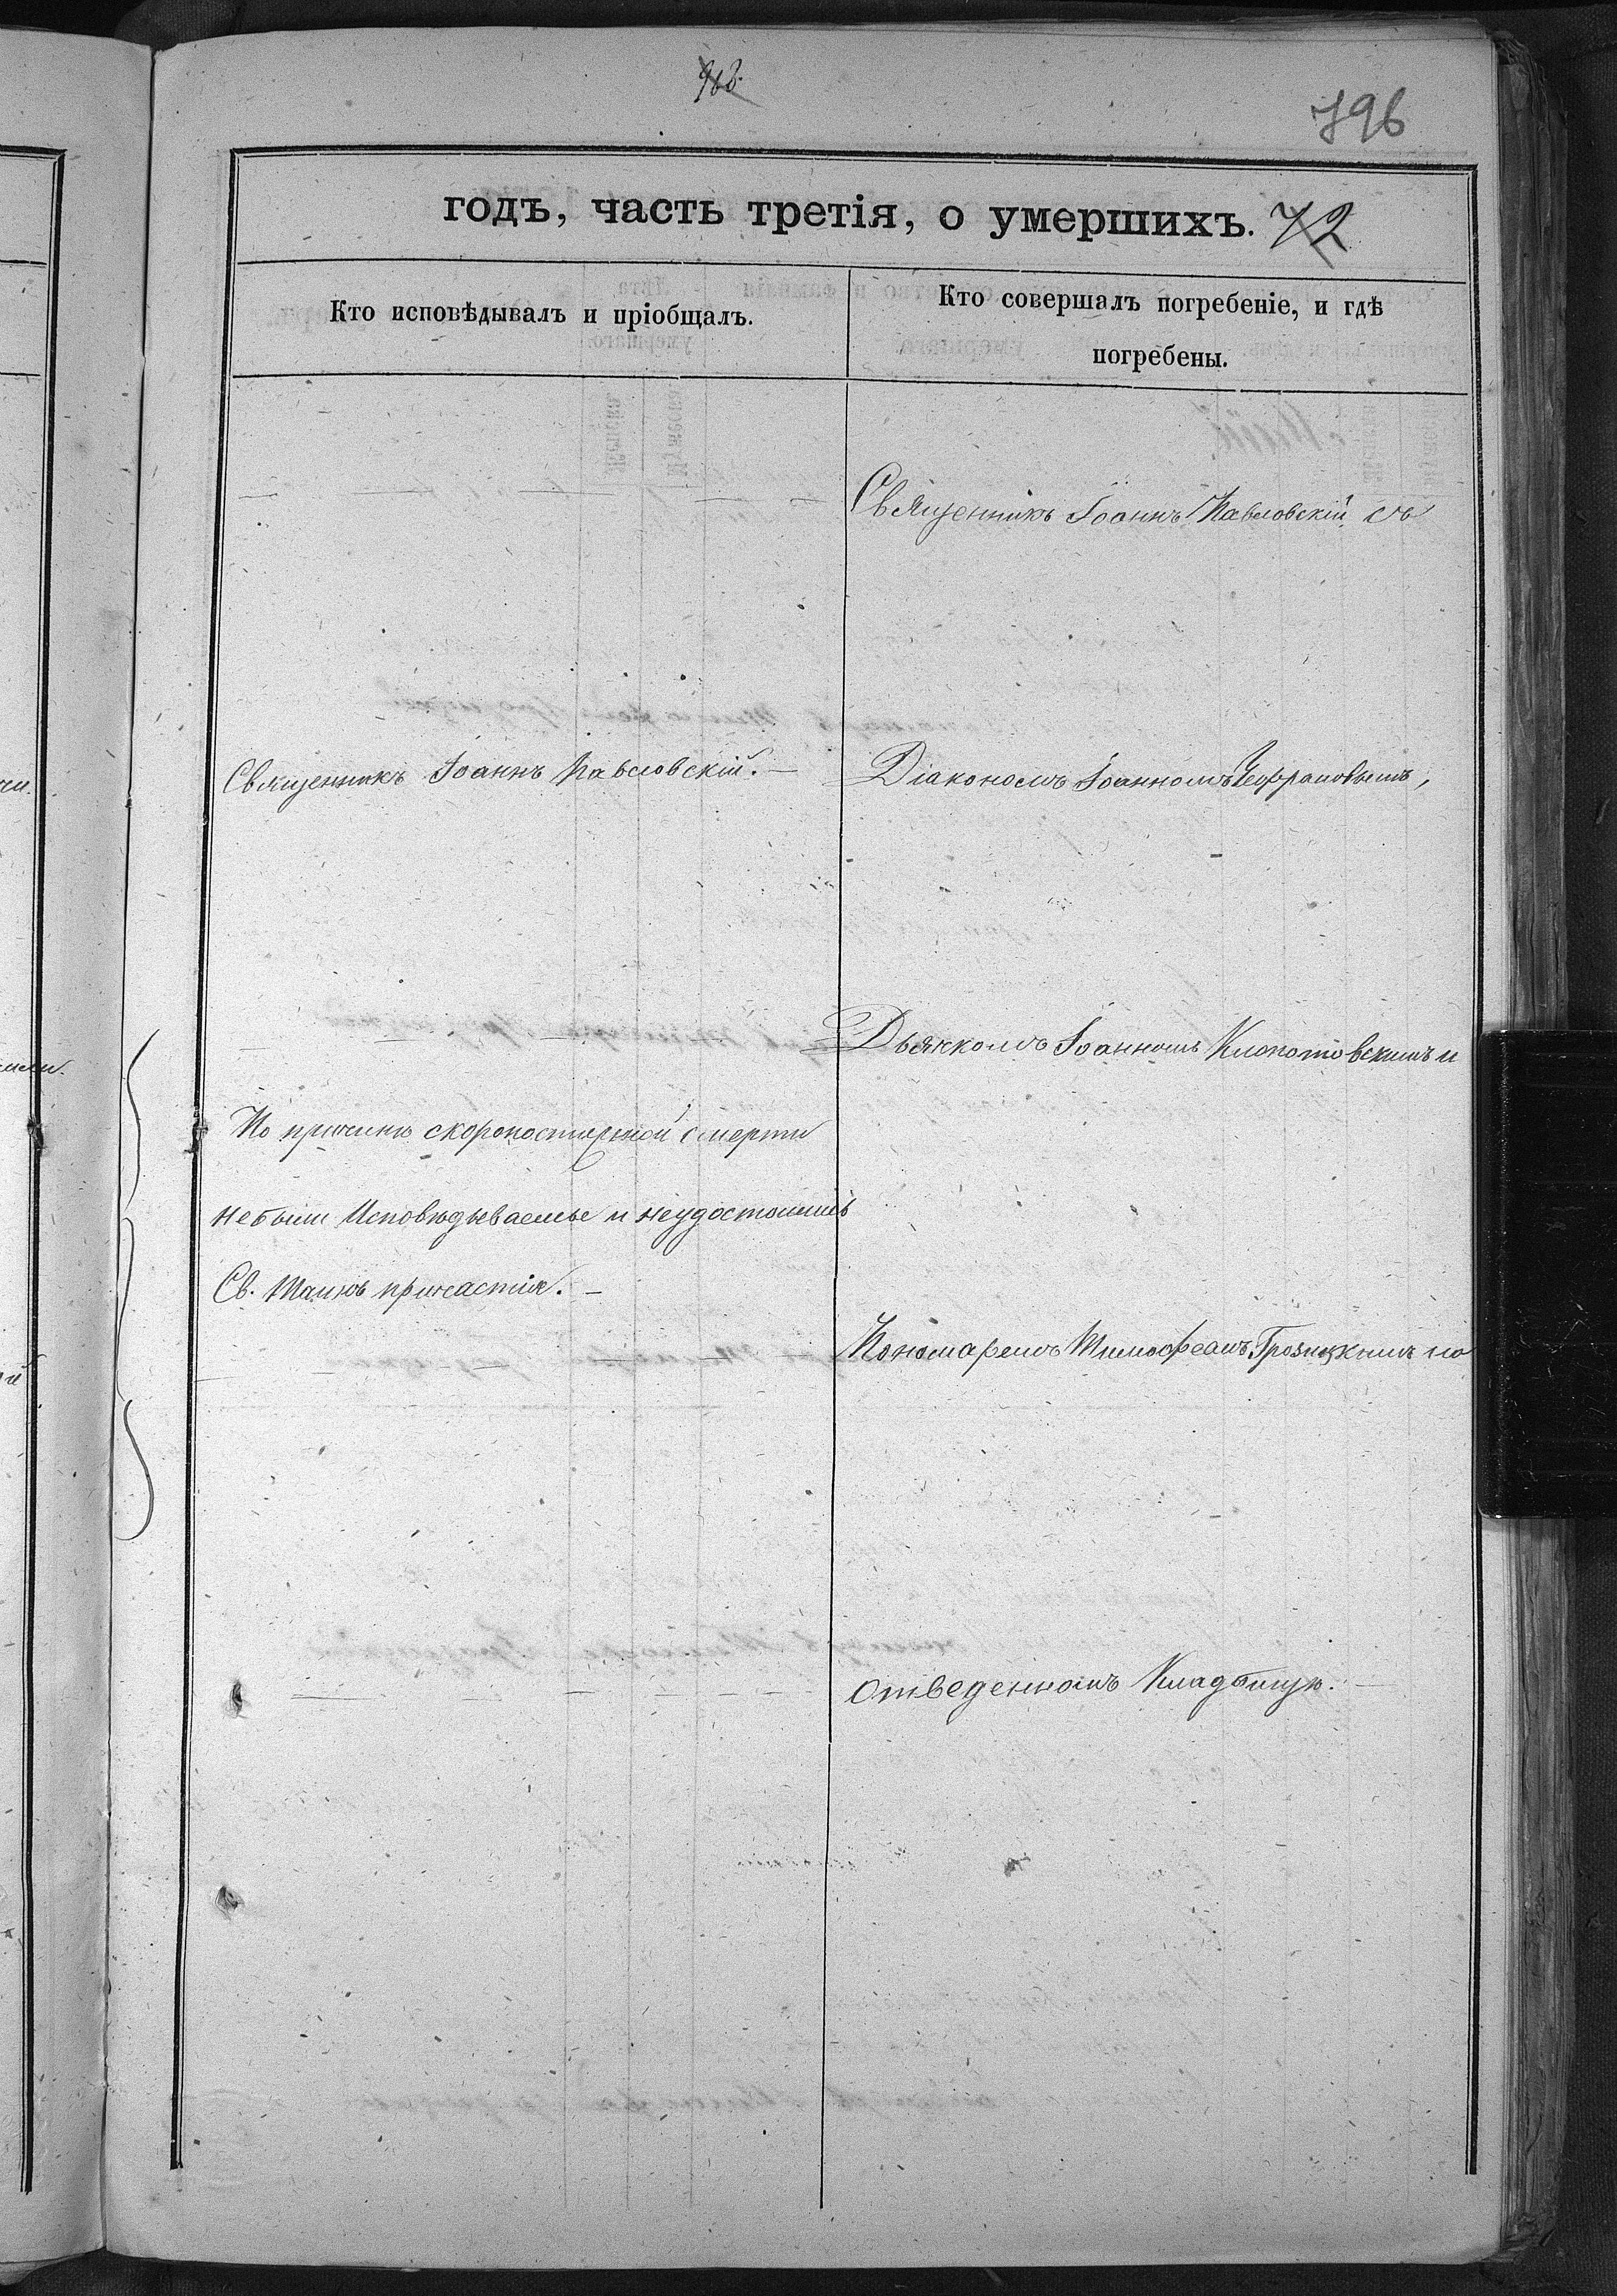 796
годъ, часть третія, о умершихъ. 72
Кто исповѣдывалъ и пріобщалъ.
Кто совершалъ погребеніе, и гдѣ
погребены.
Священникъ Іоаннъ Павловскій съ
Священникъ Іоаннъ Павловскій. —
Діакономъ Іоанномъ
Дьячкомъ Іоанномъ Клопотовскимъ и
По причинѣ скоропостижной смерти
небыли Исповѣдываемые и неудостоились
Св. Таинъ причастія. —
Пономаремъ Тимофеемъ Грозицкимъ на
отведенномъ Кладбищѣ.